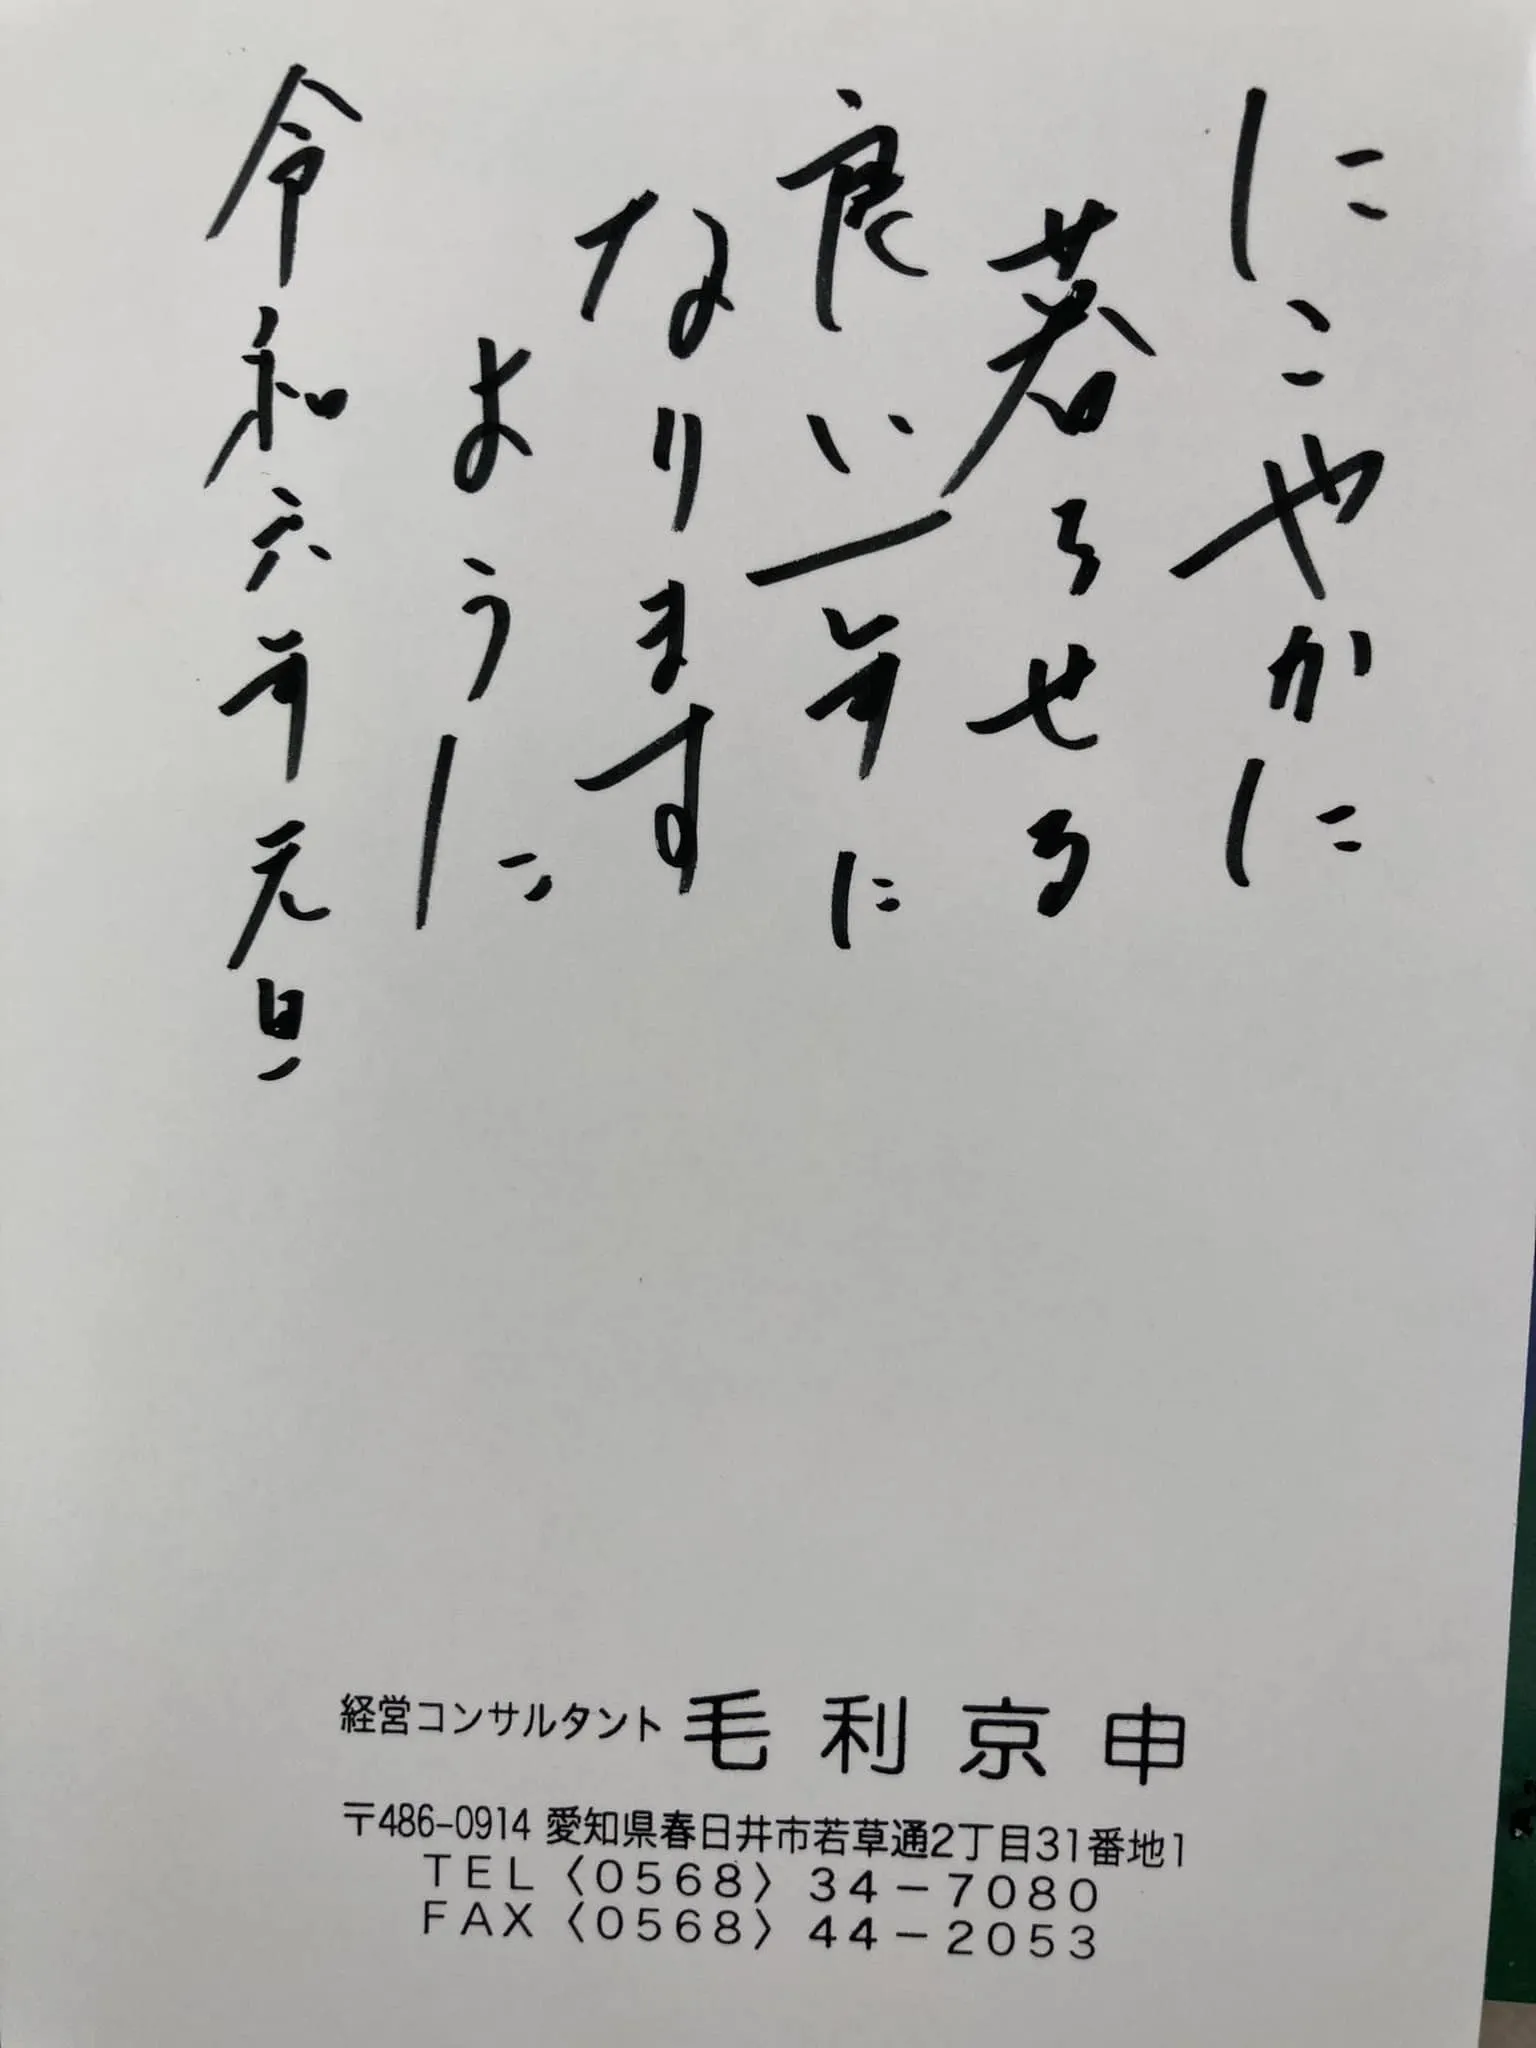 にこやかに
暮らせる
良い年に
なります
ように
令和六年元旦
経営コンサルタント 毛利京申
〒486-0914 愛知県春日井市若草通2丁目31番地1
TEL〈0568〉34-7080
FAX〈0568〉44-2053